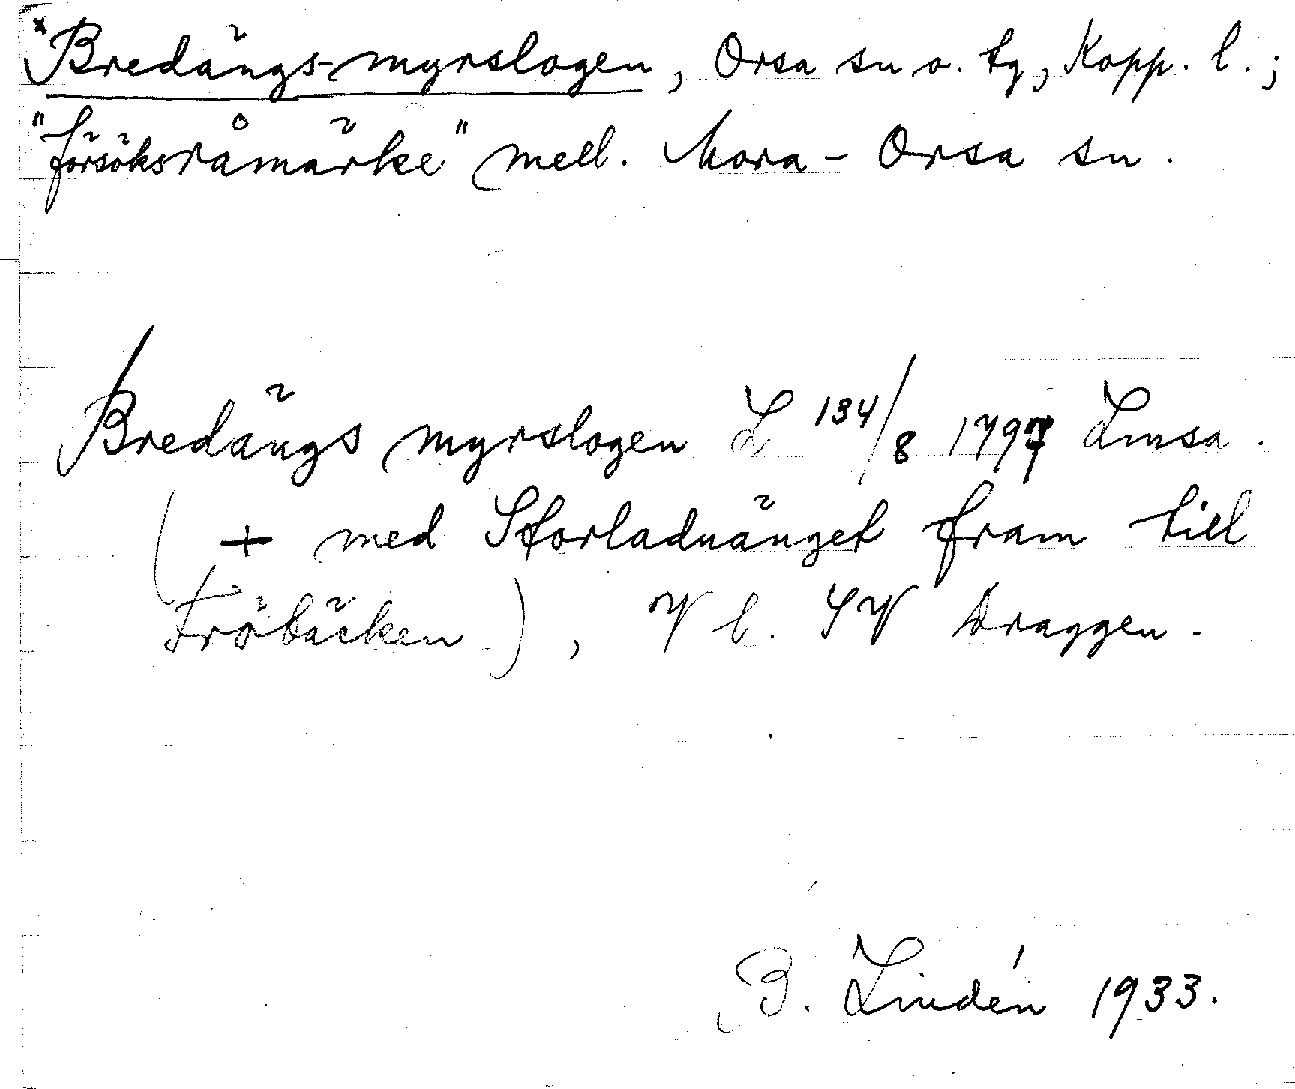 *Bredängs-myrslogen, Orsa sn o. tg, Kopp. l.;
"försöksråmärke" mell. Mora - Orsa sn.
Bredängs myrslogen L 134/8 1797 Lmsa.
( + med Storladuänget fram till
Fröbäcken), V l. SV Draggen.
B. Lindén 1933.